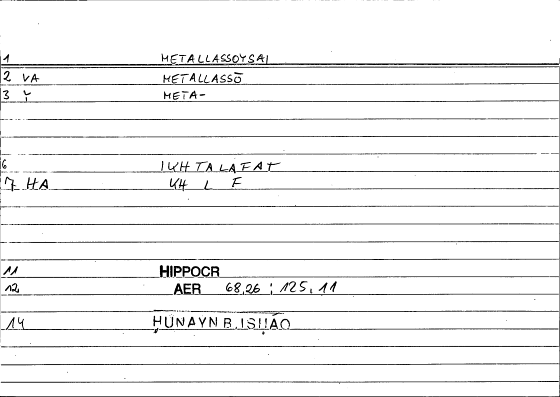 1 METALLASSOYSAI
2 VA METALLASSŌ
3 Y META-
6 IUHTALAFAT
7 HA UH L F
11 HIPPOCR
12 AER 68,26 ; 125,11
14 ḤUNAYN B.ISḤĀQ